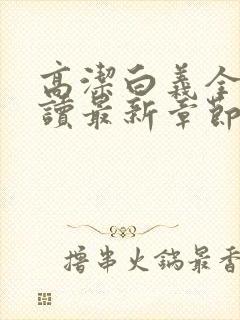 高潔白義全
讀最新章節
撸串火鍋最香